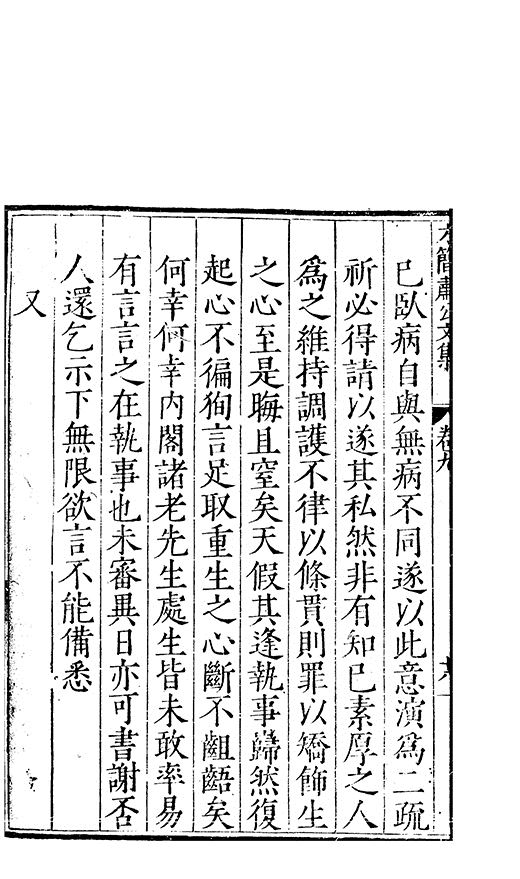 簡肅公文集
卷九
已臥病自與無病不同遂以此意演爲二疏
祈必得請以遂其私然非有知已素厚之人
爲之維持調護不律以條貫則罪以矯飾生
之心至是晦且窒矣天假其逢執事巋然復
起心不徧狥言足取重生之心斷不齟齬矣
何幸何幸內閣諸老先生處生皆未敢率易
有言言之在執事也未審異日亦可書謝否
人還乞示下無限欲言不能備悉
又